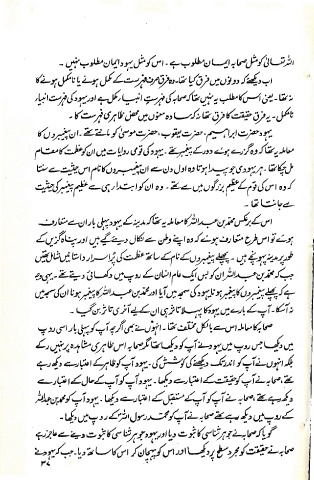 اللہ تعالیٰ کو مثل صحابہ ایمان مطلوب ہے۔ اس کو مثل یہود ایمان مطلوب نہیں۔
اب دیکھئے کہ دونوں میں فرق کیا تھا۔ وہ فرق صرف فہرست کے مکمل ہونے یا نامکمل ہونے کا
نہ تھا۔ یعنی اس کا مطلب یہ نہیں تھا کہ صحابہ کی فہرست انبیاء مکمل ہے اور یہود کی فہرست انبیاء
نامکمل۔ یہ فرق حقیقت کا فرق تھا نہ کہ سادہ معنوں میں محض ظاہری فہرست کا۔
یہود حضرت ابراہیم، حضرت یعقوب، حضرت موسیٰ کو مانتے تھے۔ ان پیغمبروں کا
معاملہ یہ تھا کہ وہ گزرے ہوئے دور کے پیغمبر تھے۔ یہود کی قومی روایات میں ان کو عظمت کا مقام
مل چکا تھا۔ ہر یہودی جو پیدا ہوتا وہ اول دن سے ان پیغمبروں کا نام اس حیثیت سے سنتا
کہ وہ اس کی قوم کے عظیم بزرگوں میں سے تھے۔ وہ ان کو ابتدا ہی سے عظیم پیغمبر کی حیثیت
سے جانتا تھا۔
اس کے برعکس محمد بن عبداللہ کا معاملہ یہ تھا کہ مدینہ کے یہود پہلی بار ان سے متعارف
ہوئے تو اس طرح متعارف ہوئے کہ وہ اپنے وطن سے نکال دیئے گئے ہیں اور پناہ گزیں کے
طور پر مدینہ پہونچے ہیں۔ پچھلے پیغمبروں کے نام کے ساتھ عظمت کی پُراسرار داستانیں شامل تھیں
جب کہ محمد بن عبداللہ ان کو بس ایک عام انسان کے روپ میں دکھائی دیتے تھے۔ یہی وجہ
ہے کہ پچھلے پیغمبروں کا پیغمبر ہونا یہود کی سمجھ میں آیا اور محمد بن عبداللہ کا پیغمبر ہونا ان کی سمجھ میں
نہ آسکا۔ آپ کے بارے میں یہود کا پہلا تاثر ہی ان کے لیے آخری تاثر بن گیا۔
صحابہ کا معاملہ اس سے بالکل مختلف تھا۔ انہوں نے بھی اگرچہ آپ کو پہلی بار اسی روپ
میں دیکھا جس روپ میں یہود نے آپ کو دیکھا تھا مگر صحابہ اس ظاہری مشاہدہ پر نہیں رکے
بلکہ انہوں نے آپ کو اندر تک دیکھنے کی کوشش کی۔ یہود آپ کو ظاہر کے اعتبار سے دیکھ رہے
تھے، صحابہ نے آپ کو حقیقت کے اعتبار سے دیکھا۔ یہود آپ کو آپ کے حال کے اعتبار سے
دیکھ رہے تھے، صحابہ نے آپ کو آپ کے مستقبل کے اعتبار سے دیکھا۔ یہود آپ کو محمد بن عبداللہ
کے روپ میں دیکھ رہے تھے صحابہ نے آپ کو محمد رسول اللہ کے روپ میں دیکھا۔
گویا کہ صحابہ نے جوہر شناسی کا ثبوت دیا اور یہود جوہر شناسی کا ثبوت دینے سے عاجز رہے
صحابہ نے حقیقت کو مجرد سطح پر دیکھا اور اس کو پہچان کر اس کا ساتھ دیا۔ جب کہ یہود نے
۳۷